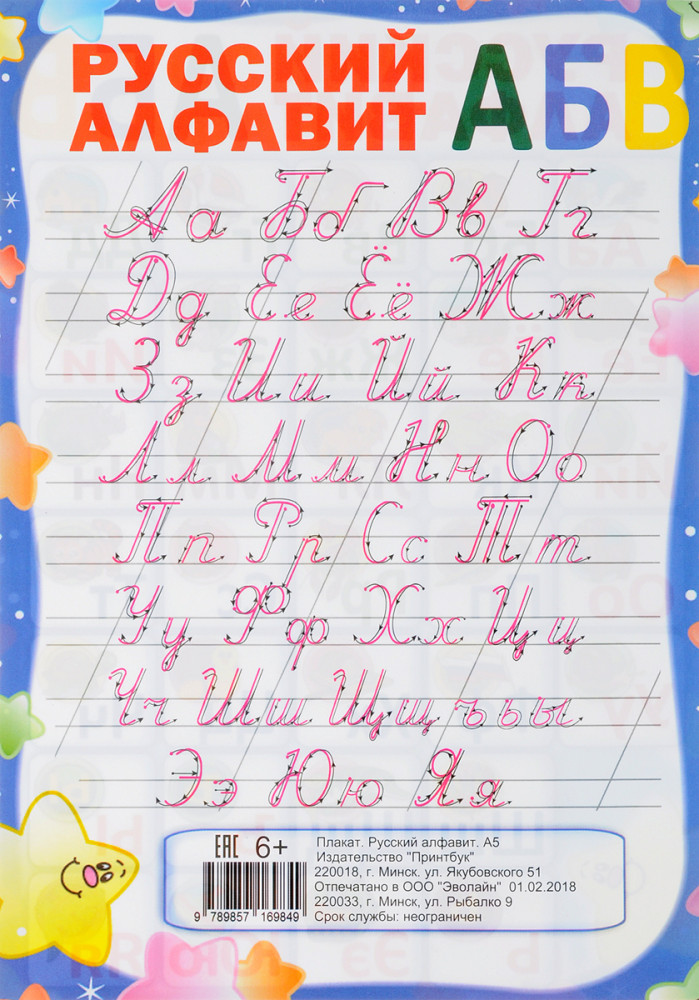 РУССКИЙ АБВ
АЛФАВИТ
Аа Бб Вв Гг
Дд Ее Ёё Жж
Зз Ии Йй Кк
Лл Мм Нн Оо
Пп Рр Сс Тт
Уу Фф Хх Цц
Чч Шш Щщ ъ ь ы
Ээ Юю Яя
ЕАС 6+
Плакат. Русский алфавит. А5
Издательство "Принтбук"
220018, г. Минск. ул. Якубовского 51
Отпечатано в ООО "Эволайн" 01.02.2018
220033, г. Минск, ул. Рыбалко 9
Срок службы: неограничен
9 789857 169849